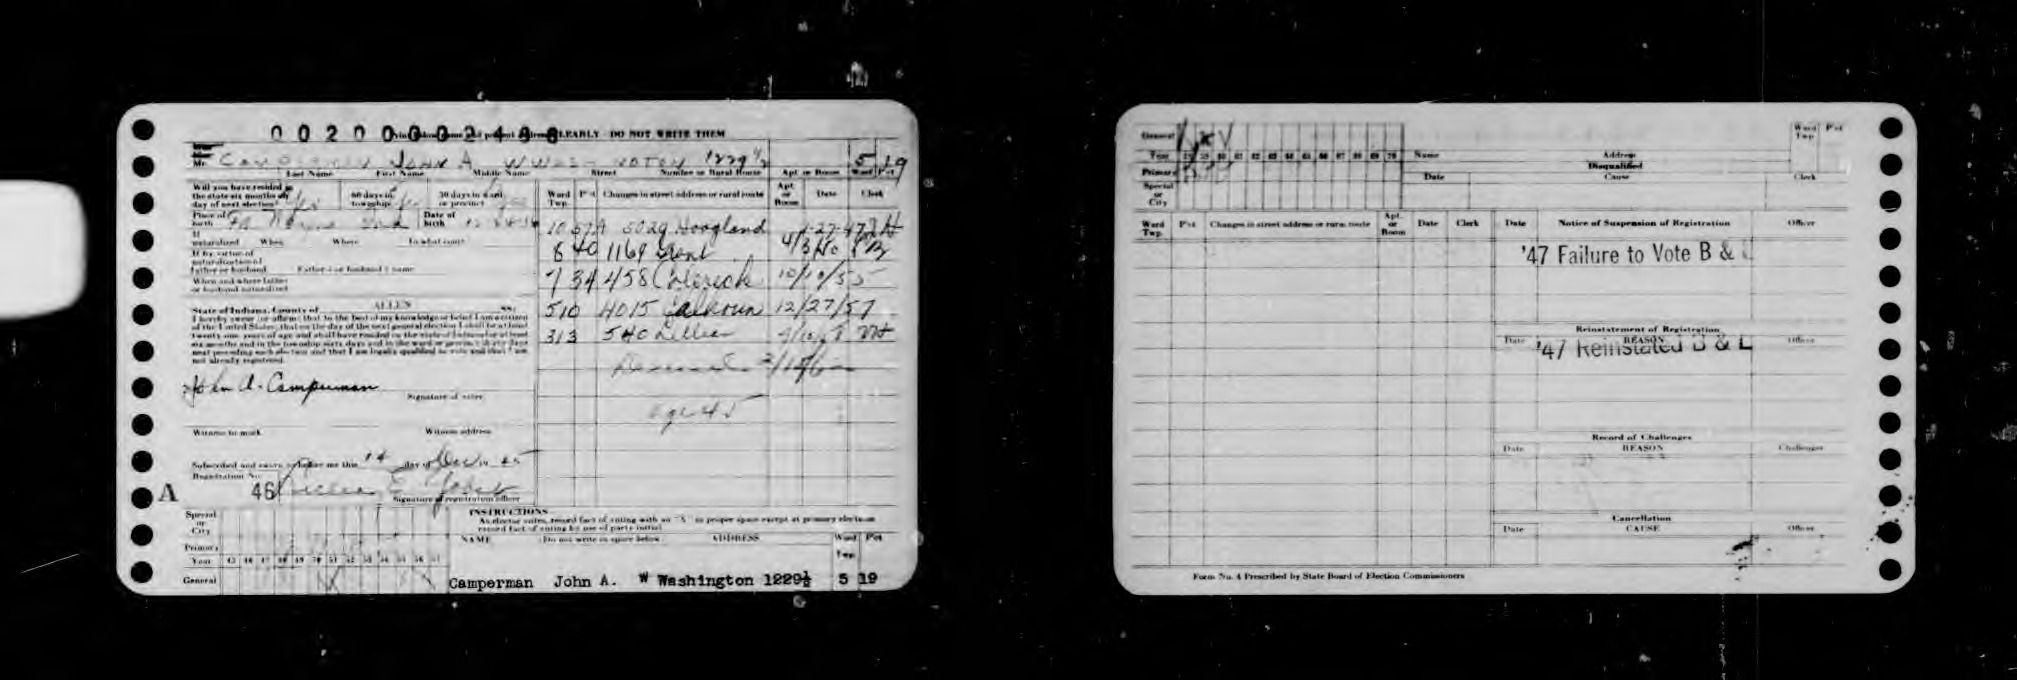 00200002488
Print below name and present address CLEARLY - DO NOT WRITE THEM
Mr. Camperman John A. W Washington 1229 1/2 5 19
Last Name First Name Middle Name Street Number or Rural Route Apt. or Room Ward Pct
Will you have resided in the state six months by day of next election? Yes 60 days in township? 30 days in ward or precinct
Place of birth Ft Wayne Ind Date of birth
If naturalized When Where In what court
If by virtue of naturalization of father or husband Father's or husband's name
When and where father or husband naturalized
State of Indiana, County of ALLEN SS:
I hereby swear (or affirm) that to the best of my knowledge or belief I am a citizen
of the United States; that on the day of the next general election I shall be at least
twenty-one years of age and shall have resided in the state of Indiana for at least
six months and in the township sixty days and in the ward or precinct thirty days
next preceding such election and that I am legally qualified to vote and that I am
not already registered.
John A. Camperman
Signature of voter
Witness to mark Witness address
Subscribed and sworn to before me this 14 day of Dec 19 45
Registration No. 46
Signature of registration officer
A
Ward Twp. Pct Changes in street address or rural route Apt. or Room Date Clerk
10 5029 Hoagland
8 40 1169 Grant
7 34 458 10/10/55
5 10 4015 Calhoun 12/27/57
3 13 540 Lillie
Deceased
age 45
INSTRUCTIONS
As elector votes, record fact of voting with an "X" in proper space except at primary elections
record fact of voting by use of party initial.
Special or City
Primary
Year 45 46 47 48 49 50 51 52 53 54 55 56 57
General
NAME (Do not write in space below) ADDRESS Ward Twp. Pct
Camperman John A. W Washington 1229½ 5 19
General X V
Year 58 59 60 61 62 63 64 65 66 67 68 69 70
Primary
Special or City
Name Address Ward Twp. Pct
Disqualified
Date Cause Clerk
Ward Twp. Pct Changes in street address or rural route Apt. or Room Date Clerk
Date Notice of Suspension of Registration Officer
'47 Failure to Vote B &
Reinstatement of Registration
Date REASON Officer
'47 Reinstated B & L
Record of Challenges
Date REASON Challenges
Cancellation
Date CAUSE Officer
Form No. 4 Prescribed by State Board of Election Commissioners